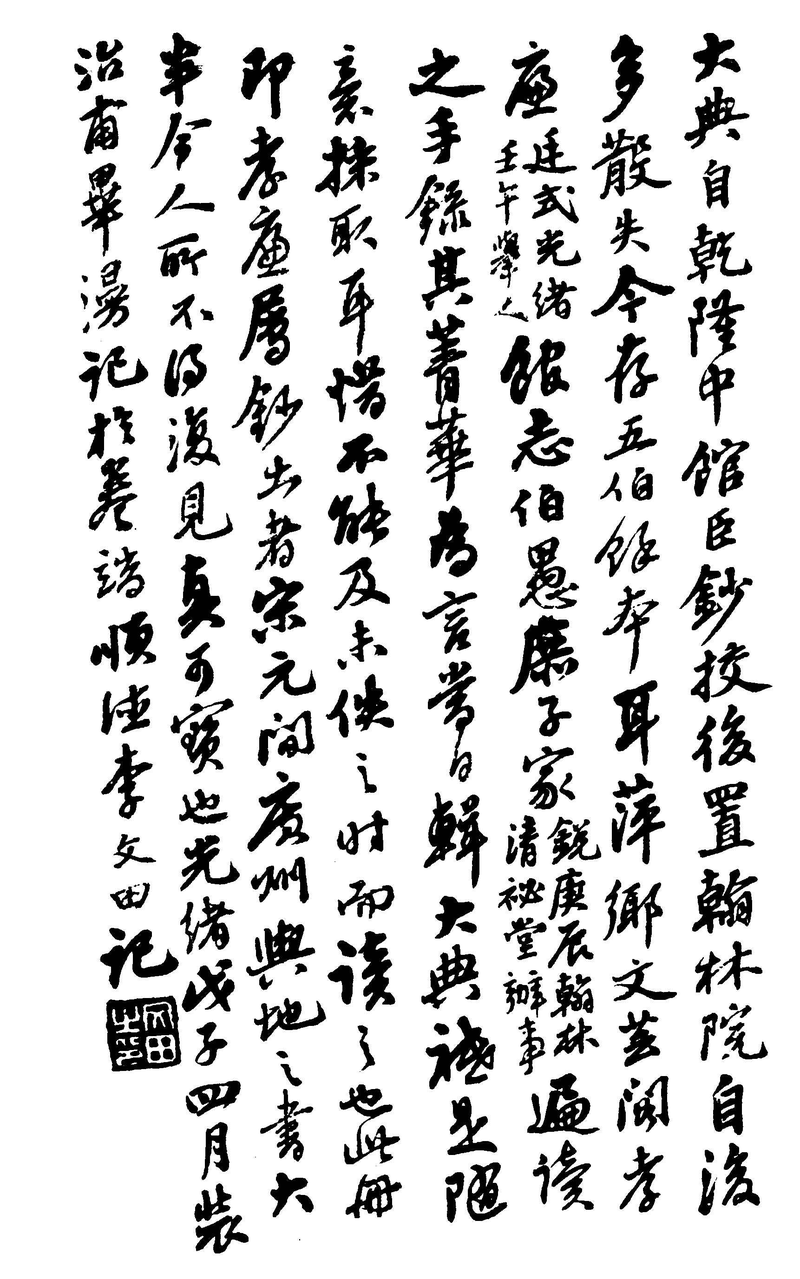 大典自乾隆中館臣鈔挍後置翰林院自後
多散失今存五伯餘本耳萍鄉文芸閣孝
廉廷式光緒壬午舉人館志伯愚詹子家銳庚辰翰林清祕堂辦事遍读
之手錄其菁華為言當日輯大典祗是隨
意採取耳惜不能及未佚之时而读之也此冊
即孝廉屬鈔出者宋元间廣州輿地之書大
半今人所不得復見真可寶也光緒戊子四月裝
治甫畢漫記於卷端順德李文田記
文田之印